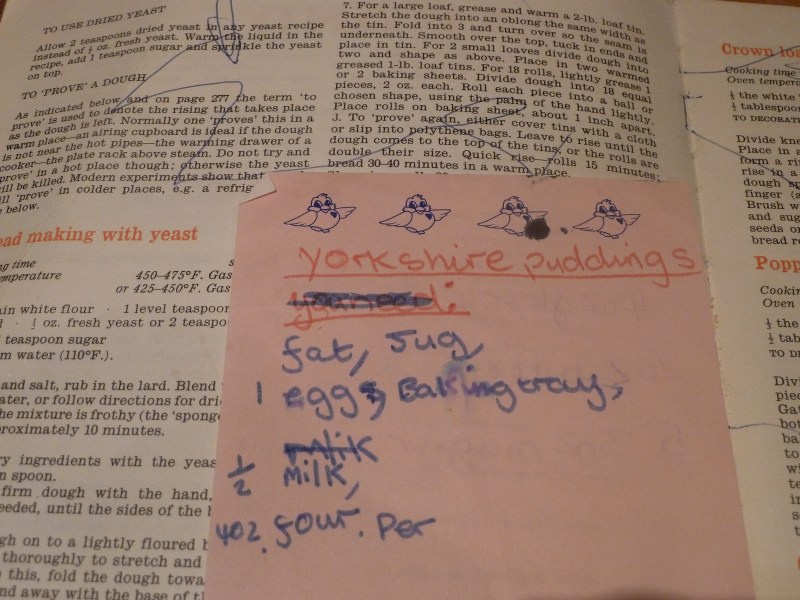 TO USE DRIED YEAST
Allow 2 teaspoons dried yeast in any yeast recipe
instead of ½ oz. fresh yeast. Warm the liquid in the
recipe, add 1 teaspoon sugar and sprinkle the yeast
on top.
TO 'PROVE' A DOUGH
As indicated below and on page 277 the term 'to
prove' is used to denote the rising that takes place
as the dough is left. Normally one 'proves' this in a
warm place—an airing cupboard is ideal if the dough
is not near the hot pipes—the warming drawer of a
cooker—the plate rack above steam. Do not try and
'prove' in a hot place though; otherwise the yeast
will be killed. Modern experiments show that
'prove' in colder places, e.g. a refrig
below.
ead making with yeast
ng time
mperature 450–475°F. Gas
or 425–450°F. Gas
ain white flour · 1 level teaspoon
oz. fresh yeast or 2 teaspo
teaspoon sugar
m water (110°F.).
and salt, rub in the lard. Blend
ater, or follow directions for dri
he mixture is frothy (the 'sponge
roximately 10 minutes.
ry ingredients with the yeas
n spoon.
firm dough with the hand,
eeded, until the sides of the
gh on to a lightly floured
thoroughly to stretch and
this, fold the dough towa
nd away with the base of
7. For a large loaf, grease and warm a 2-lb. loaf tin.
Stretch the dough into an oblong the same width as
the tin. Fold into 3 and turn over so the seam is
underneath. Smooth over the top, tuck in ends and
place in tin. For 2 small loaves divide dough into
two and shape as above. Place in two warmed
greased 1-lb. loaf tins. For 18 rolls, lightly grease 1
or 2 baking sheets. Divide dough into 18 equal
pieces, 2 oz. each. Roll each piece into a ball or
Place rolls on baking sheet, about 1 inch apart.
J. To 'prove' again, either cover tins with a cloth
or slip into polythene bags. Leave to rise until the
dough comes to the top of the tins, or the rolls are
double their size. Quick rise—rolls 15 minutes;
bread 30–40 minutes in a warm place.
yorkshire puddings
you need:
fat, Jug,
1 eggs, Baking tray,
milk
½ milk,
4oz. four. Per
Crown loa
Cooking time
Oven tempera
½ the white
½ tablespoon
TO DECORAT
Divide kne
Place in
form a ri
rise in a
dough
finger
Brush w
and sug
seeds o
bread r
Popp
Cooki
Oven
½ the
½ tab
TO DE
Div
pie
Ga
bot
ba
to
wi
te
in